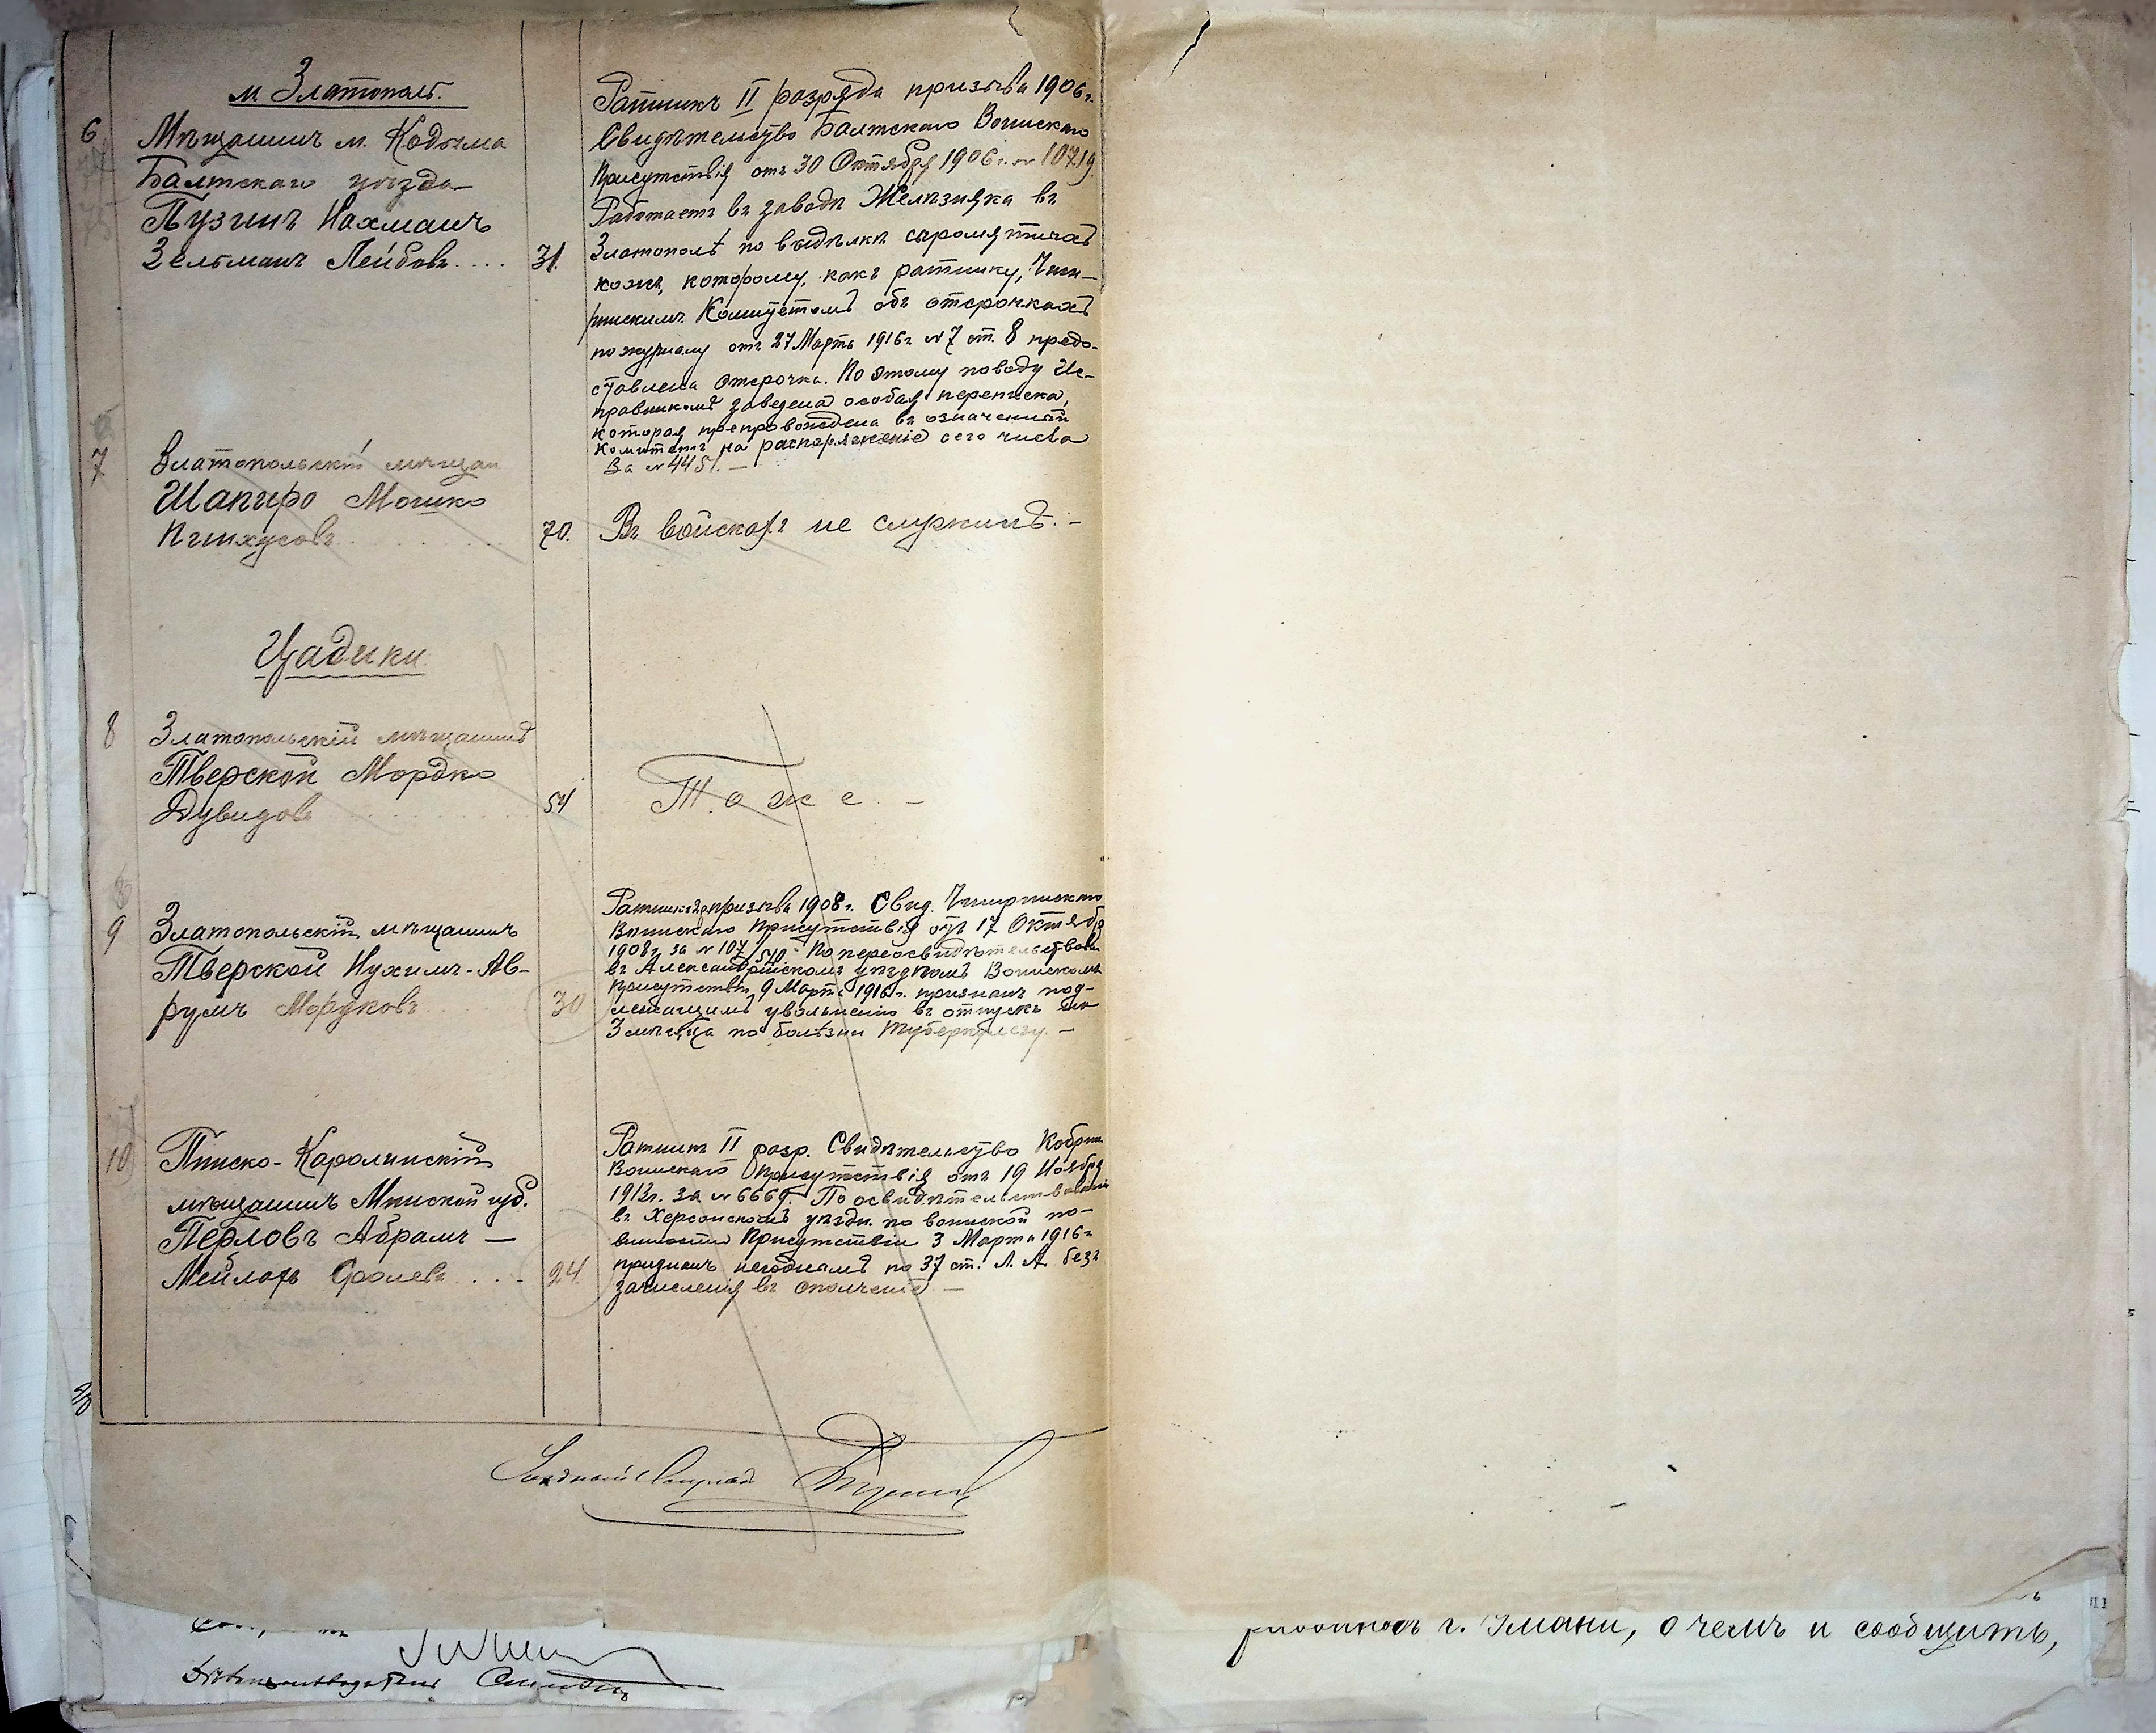 м Златополь.
6
Мѣщанинъ м. Кодыма
Балтскаго уѣзда
Пузинъ Нахманъ
Зельманъ Лейбовъ....
31.
Ратникъ II разряда призыва 1906 г.
Свидѣтельство Балтскаго Воинскаго
Присутствія отъ 30 Октября 1906 г. № 10719.
Работаетъ въ заводѣ Желѣзняка въ
Златополѣ по выдѣлкѣ сыромятныхъ
кожъ, которому, какъ ратнику, Чиги-
ринскимъ Комитетомъ объ отсрочкахъ
по журналу отъ 27 Марта 1916 г № 7 ст. 8 предо-
ставлена отсрочка. По этому поводу Ис-
правникомъ заведена особая переписка,
которая препровождена въ означенный
Комитетъ на распоряженіе сего числа
За № 4451. —
7
Златопольскій мѣщан
Шапиро Мошко
Пинхусовъ
70.
Въ войскахъ не служилъ. —
Цадики
8
Златопольскій мѣщанинъ
Тверской Мордко
Дувидовъ
54
Тоже. —
9
Златопольскій мѣщанинъ
Тверской Нухимъ-Ав-
румъ Мордковъ
30
Ратникъ 2 р призыва 1908 г. Свид. Чигиринскаго
Воинскаго Присутствія отъ 17 Октября
1908 г. за № 107/540. По переосвидѣтельствован
въ Александрійскомъ уѣздномъ Воинскомъ
Присутствіи 9 Марта 1916 г. признанъ под-
лежащимъ увольненію въ отпускъ на
3 мѣсяца по болѣзни туберкулезу. —
10
Пинско-Каролинскій
мѣщанинъ Минской губ.
Перловъ Абрамъ —
Мейлахъ Сролевъ...
24.
Ратникъ II разр. Свидѣтельство Кобрин.
Воинскаго Присутствія отъ 19 Ноября
1912 г. за № 6669. По освидѣтельствованіи
въ Херсонскомъ уѣздн. по воинской по-
винности Присутствіи 3 Марта 1916 г
признанъ негоднымъ по 37 ст. Л. А. безъ
зачисленія въ ополченіе —
г. Умани, о чемъ и сообщить,